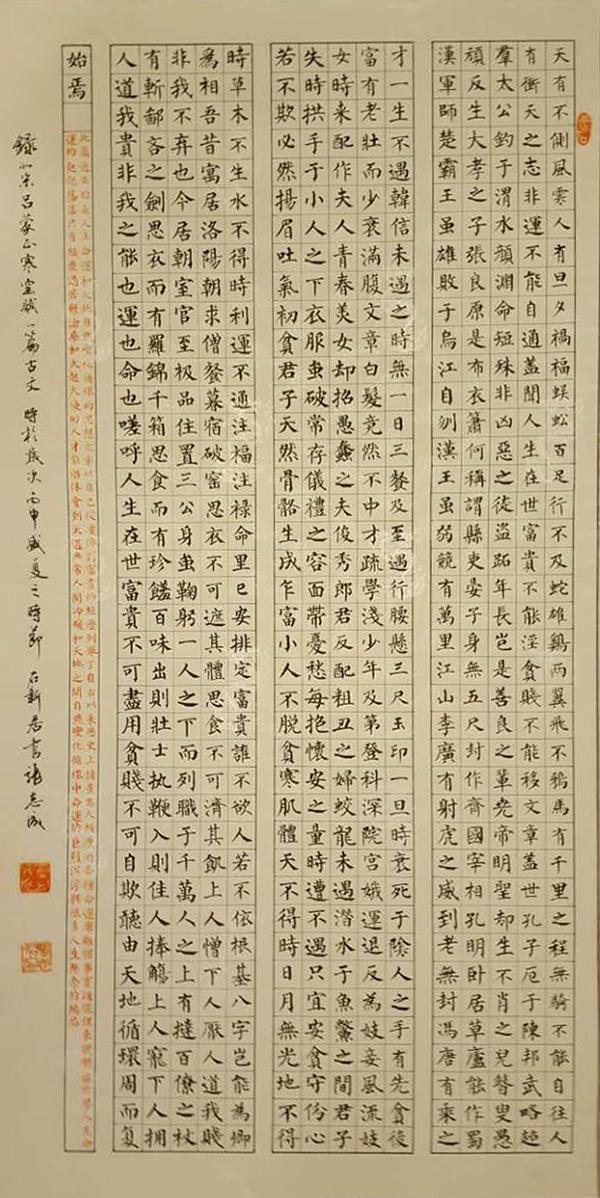 天有不側風雲人有旦夕禍福蜈蚣百足行不及蛇雄鷄兩翼飛不鴉馬有千里之程無騎不能自往人
有衝天之志非運不能自通蓋聞人生在世富貴不能淫貧賤不能移文章蓋世孔子厄于陳邦武略超
羣太公釣于渭水顔淵命短殊非凶惡之徒盜跖年長岂是善良之輩尭帝明聖却生不肖之兒瞽叟愚
頑反生大孝之子張良原是布衣蕭何稱謂縣吏晏子身無五尺封作齊國宰相孔明卧居草廬能作蜀
漢軍師楚霸王虽雄敗于烏江自刎漢王虽弱競有萬里江山李廣有射虎之威到老無封馮唐有乘之
才一生不遇韓信未遇之時無一日三餐及至遇行腰懸三尺玉印一旦時衰死于陰人之手有先貧後
富有老壯而少衰滿腹文章白髮竟然不中才疏學淺少年及第登科深院宮娥運退反為妓妾風流妓
女時来配作夫人青春美女却招愚蠢之夫俊秀郎君反配粗丑之婦蛟龍未遇潜水于魚鱉之間君子
失時拱手于小人之下衣服虽破常存儀禮之容面帶憂愁每抱懷安之量時遭不遇只宜安貧守份心
若不欺必然揚眉吐氣初貧君子天然骨骼生成乍富小人不脱貧寒肌體天不得時日月無光地不得
時草木不生水不得時利運不通注福注禄命里已安排定富貴誰不欲人若不依根基八字岂能為卿
為相吾昔寓居洛陽朝求僧餐暮宿破窑思衣不可遮其體思食不可濟其飢上人憎下人厭人道我賤
非我不弃也今居朝室官至极品住置三公身虽鞠躬一人之下而列職于千萬人之上有撻百僚之杖
有斬鄙吝之劍思衣而有羅錦千箱思食而有珍饈百味出則壮士执鞭入則佳人捧觴上人寵下人拥
人道我貴非我之能也運也命也嗟呼人生在世富貴不可盡用貧賤不可自欺聽由天地循環周而复
始焉
錄北宋呂蒙正寒窑賦一篇古文 時於歲次丙申盛夏之時節 石新居書張志成